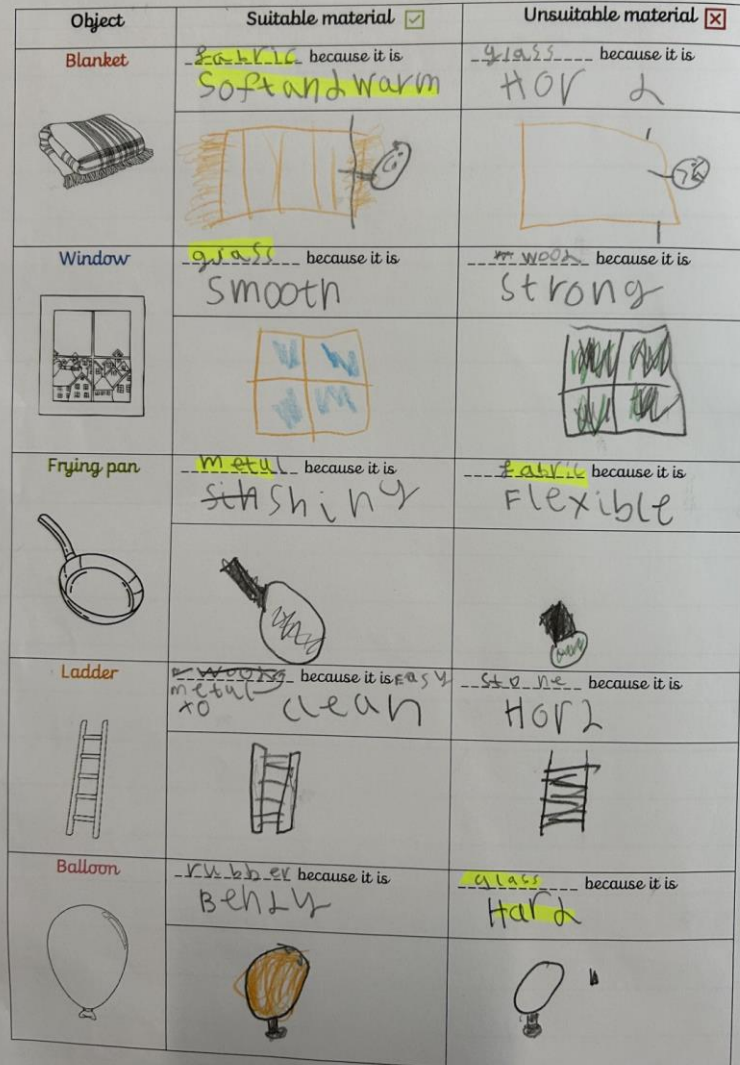 Object Suitable material Unsuitable material
Blanket
fabric because it is
Soft and warm
glass because it is
Hor d
Window
glass because it is
Smooth
wood because it is
Strong
Frying pan
metul because it is
Shiny
fabric because it is
Flexible
Ladder
metul because it is Easy
to clean
stone because it is
Hord
Balloon
rubber because it is
Bendy
glass because it is
Hard